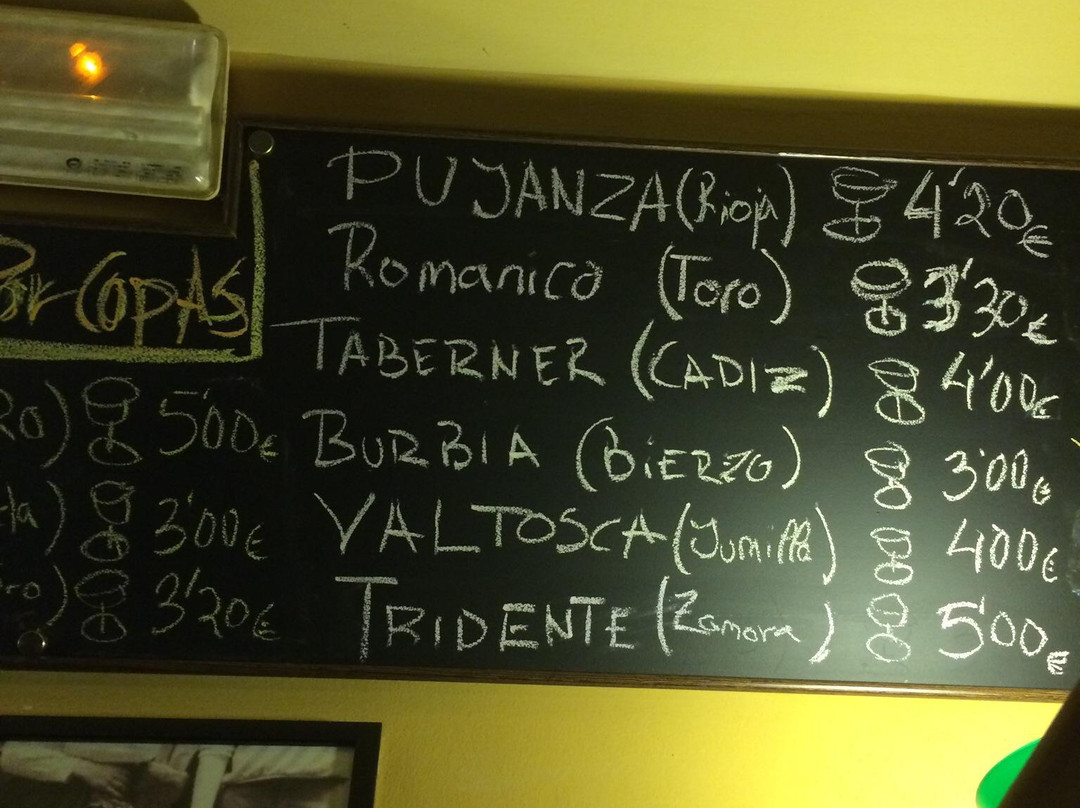 Por COPAS
RO) 5'00€
3'00€
ro) 3'20€
PUJANZA (Rioja) 4'20€
Romanico (Toro) 3'30€
TABERNER (CADIZ) 4'00€
BURBIA (BIERZO) 3'00€
VALTOSCA (Jumilla) 400€
TRIDENTE (Zamora) 5'00€